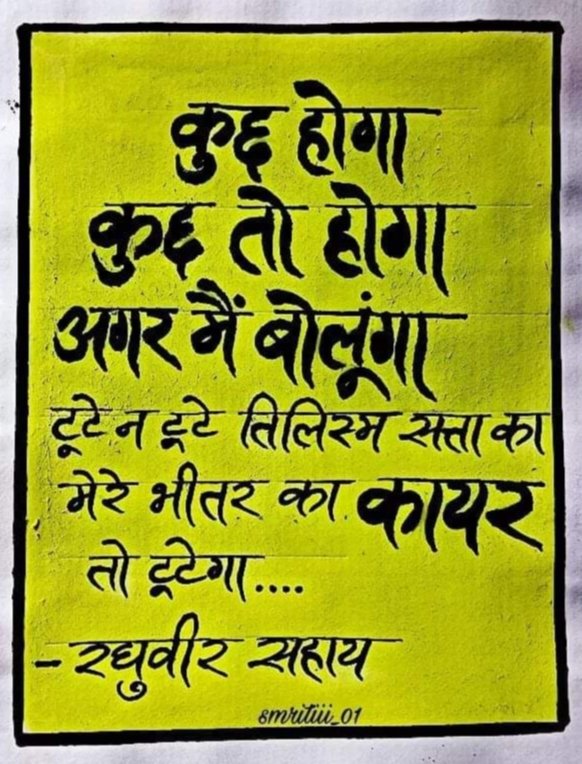 कुछ होगा
कुछ तो होगा
अगर मैं बोलूंगा
टूटे न टूटे तिलिस्म सत्ता का
मेरे भीतर का कायर
तो टूटेगा....
- रघुवीर सहाय
smritiii_01